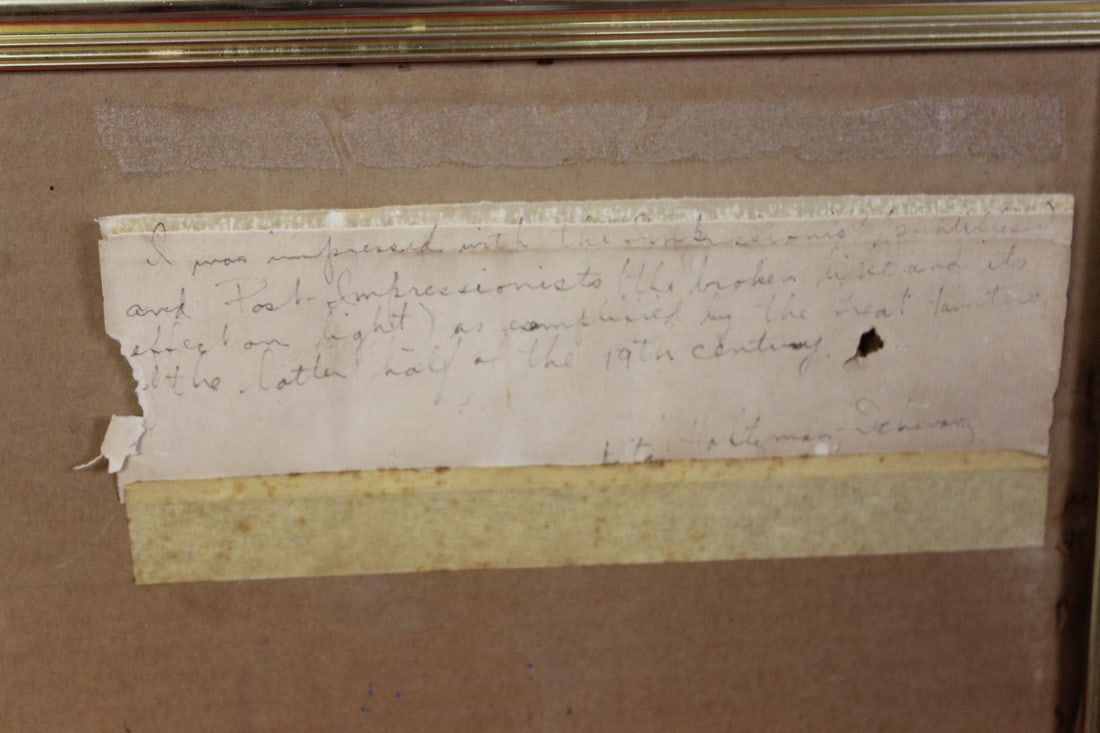 I was impressed with the Impressionist
and Post-Impressionists (the broken line and its
effect on light) as comprised by the Great Painters
the latter half of the 19th century.
Holtzman